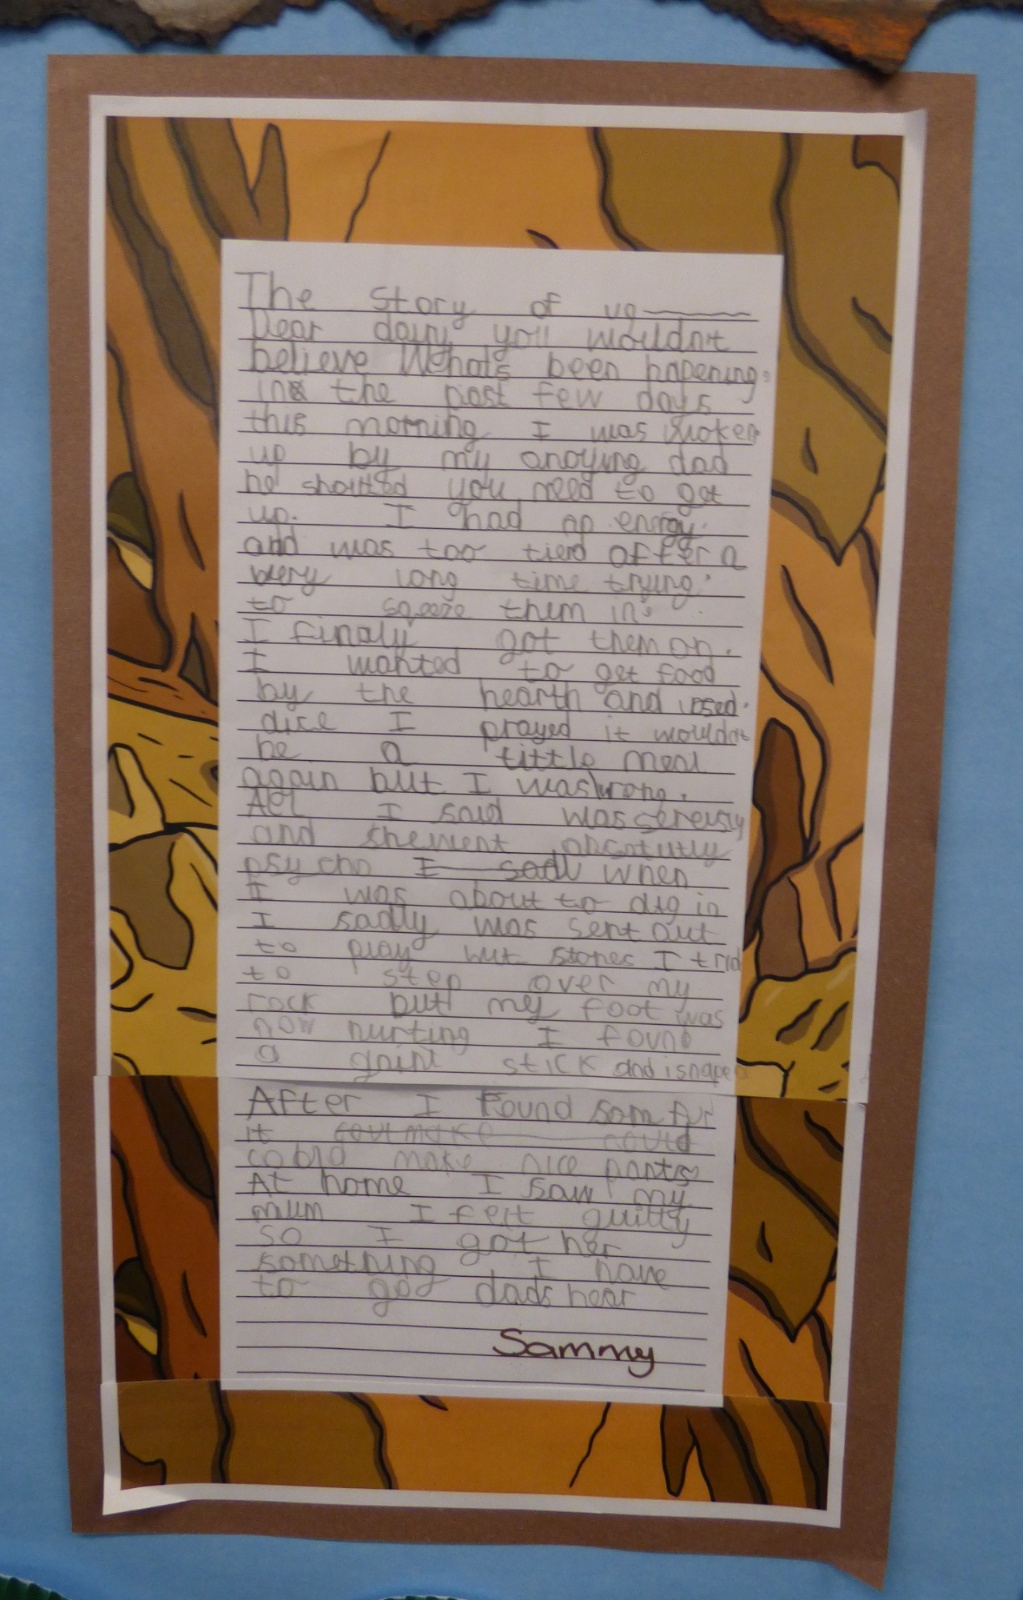 The story of ug
Dear dairy you wouldn't
believe Whats been hapening
in the past few days
this morning I was woken
up by my anoying dad
he shouted you need to get
up. I had no energy.
and was too tierd after a
very long time trying
to sqeeze them in
I finaly got them on.
I wanted to get food
by the hearth and used
dice I prayed it wouldn't
be a little meal
again but I was wrong.
All I said was sereusly
and she went absolutly
psycho I sadl when
I was about to dig in
I sadly was sent out
to play wit stones I trid
to step over my
rock but my foot was
now hurting I found
a gaint stick and isnaped
After I found som fur
it could
could make nice pants
At home I saw my
mum I felt guilty
so I got her
something I have
to go dads hear
Sammy